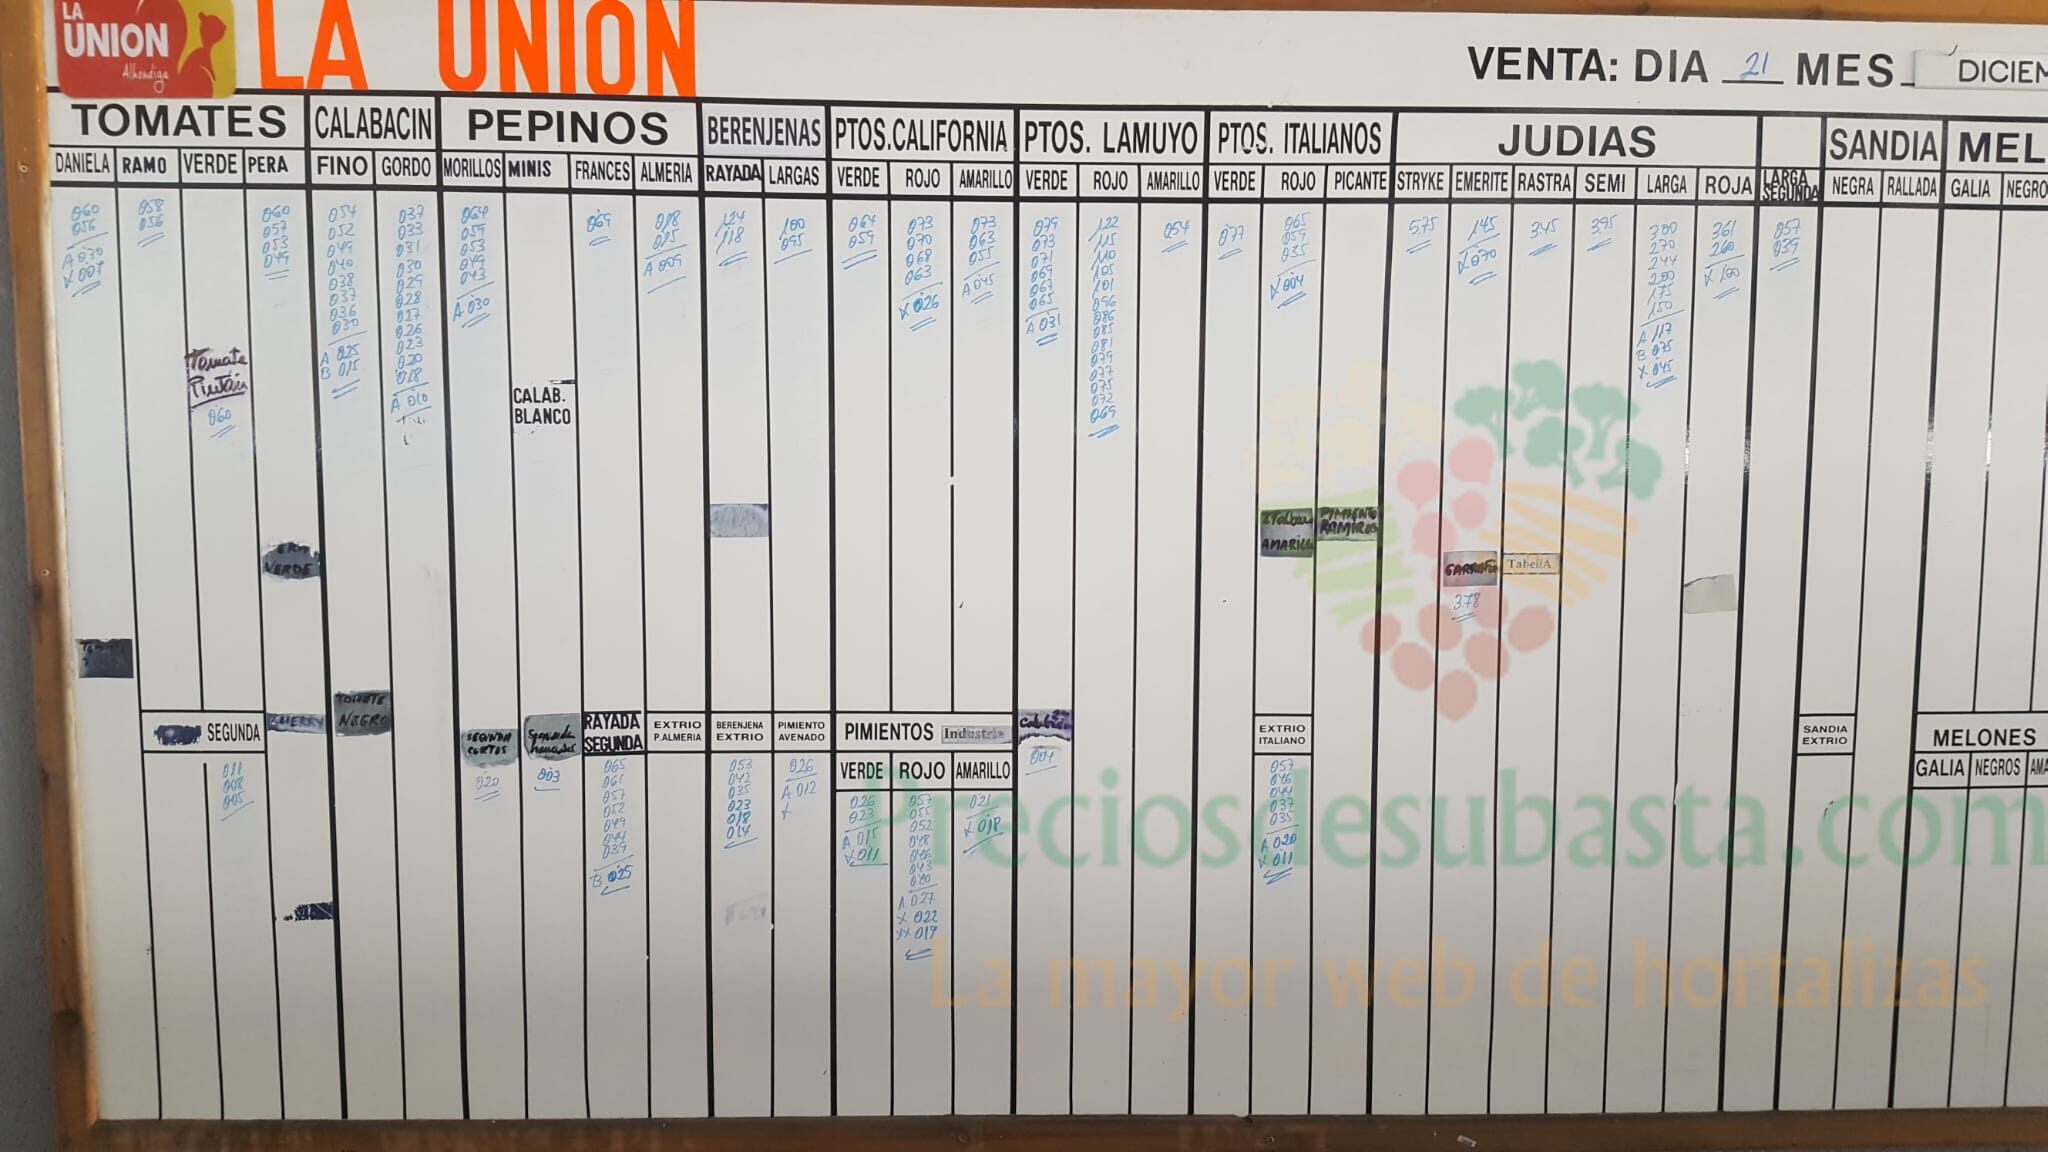 LA
UNION
Alhóndiga
LA UNION
VENTA: DIA 21 MES DICIEM
TOMATES CALABACIN PEPINOS BERENJENAS PTOS.CALIFORNIA PTOS. LAMUYO PTOS. ITALIANOS JUDIAS SANDIA MEL
DANIELA RAMO VERDE PERA FINO GORDO MORILLOS MINIS FRANCES ALMERIA RAYADA LARGAS VERDE ROJO AMARILLO VERDE ROJO AMARILLO VERDE ROJO PICANTE STRYKE EMERITE RASTRA SEMI LARGA ROJA LARGA SEGUNDA NEGRA RALLADA GALIA NEGRO
060
056
A 030
X 007
058
056
Tomate
Pintón
060
060
057
053
049
054
052
049
040
038
037
036
030
A 025
B 015
037
033
031
030
029
028
027
026
023
020
018
A 010
064
059
053
049
043
A 030
CALAB.
BLANCO
069
018
015
A 009
124
118
100
095
064
059
073
070
068
063
X 026
073
063
055
A 045
079
073
071
069
067
065
A 031
122
115
110
105
101
096
086
085
081
079
077
075
072
069
054
077
065
059
035
X 004
AMARILLO
PIMIENTO
RAMIRO
5.75
145
X 070
3.45
3.95
300
270
244
200
175
150
A 117
B 075
X 045
361
260
X 100
057
039
TabellA
3.78
VERDE
SEGUNDA
011
008
005
CHERRY
TOMATE
NEGRO
SEGUNDA
CORTOS
020
Segunda
003
RAYADA
SEGUNDA
065
061
057
052
049
044
039
B 025
EXTRIO
P.ALMERIA
BERENJENA
EXTRIO
053
042
035
023
018
014
PIMIENTO
AVENADO
026
A 012
X
PIMIENTOS Industria
VERDE ROJO AMARILLO
026
023
A 015
X 011
057
055
052
048
046
043
040
A 027
X 022
XX 019
021
X 018
004
EXTRIO
ITALIANO
057
046
044
037
035
A 020
X 011
SANDIA
EXTRIO
MELONES
GALIA NEGROS AMA
Preciosdesubasta.com
La mayor web de hortalizas